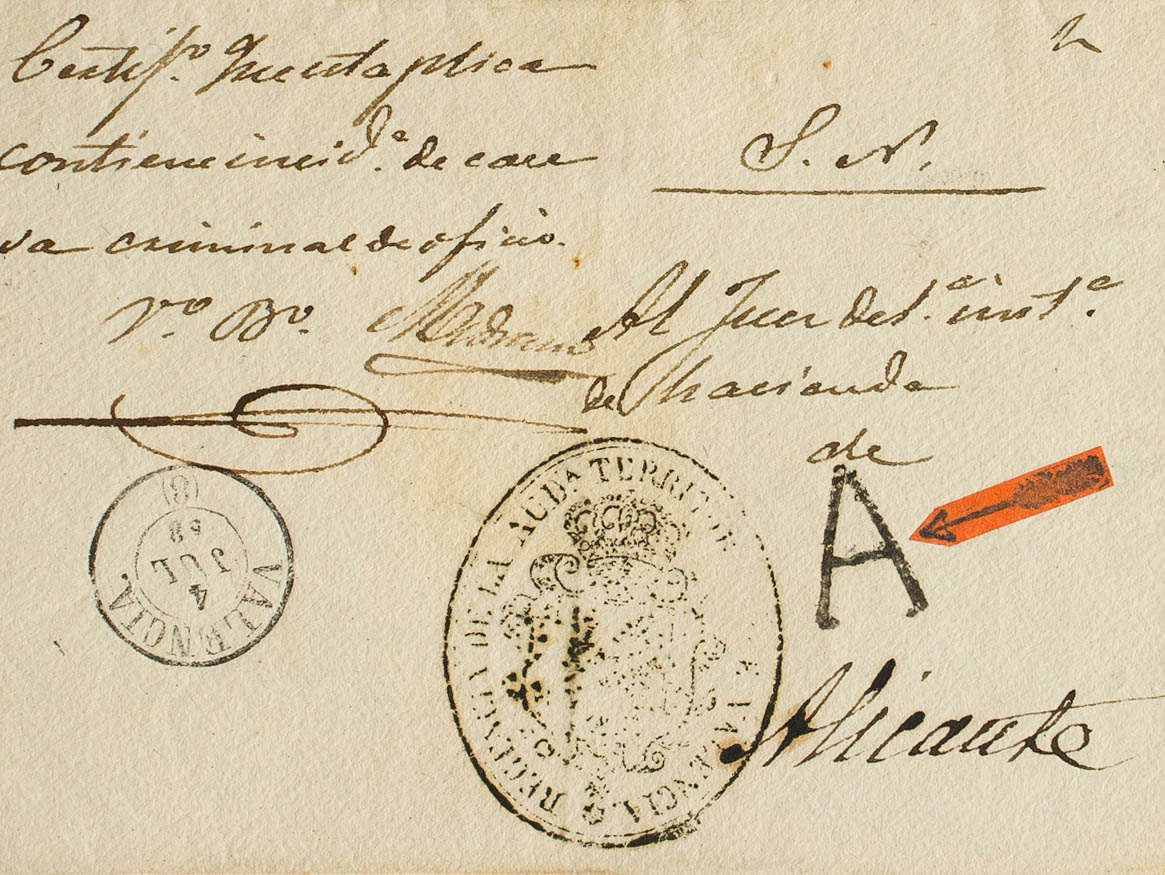 Certifº. Que esta plica
contiene incidª. de cau
sa criminal de oficio.
Vº. Bº. Medrano
S. N.
Al Juez de 1.ª instª.
de Hacienda
de
A
Alicante
(8)
58
JUL
4
VALENCIA
REGENCIA DE LA AUDA TERRITOR DE VALENCIA